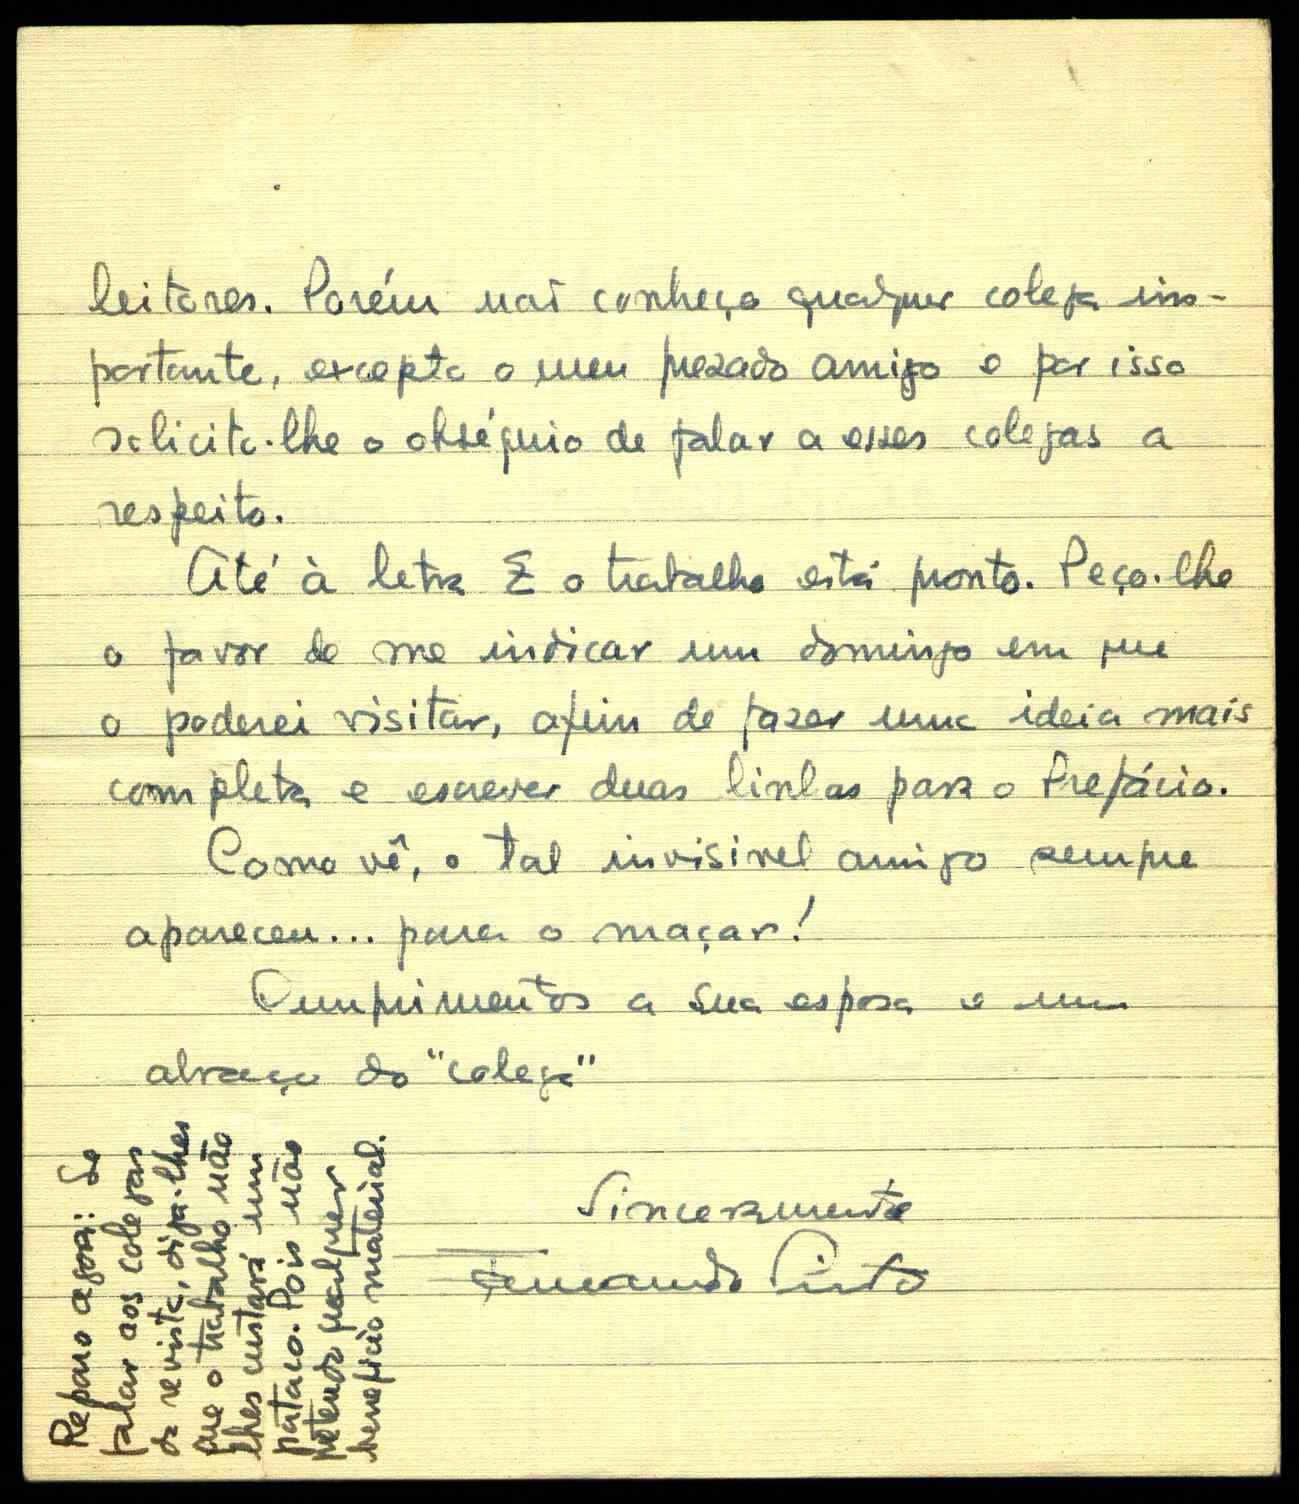 leitores. Porém não conheço qualquer colega im-
portante, excepto o meu prezado amigo e por isso
solicito-lhe o obséquio de falar a esses colegas a
respeito.
Até à letra E o trabalho está pronto. Peço-lhe
o favor de me indicar um domingo em que
o poderei visitar, afim de fazer uma ideia mais
completa e escrever duas linhas para o Prefácio.
Como vê, o tal invisivel amigo sempre
apareceu... para o maçar!
Cumprimentos a sua esposa e um
abraço do "colega"
Sinceramente
Fernando Pinto
Reparo agora: Se
falar aos colegas
da revista, diga-lhes
que o trabalho não
lhes custará um
pataco. Pois não
pretendo qualquer
beneficio material.